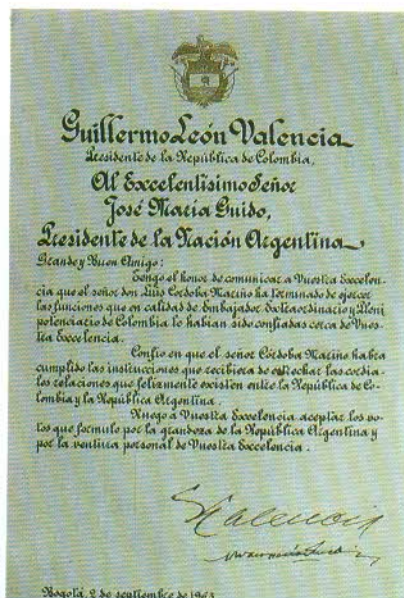 Guillermo León Valencia
Presidente de la República de Colombia,
Al Excelentísimo Señor
José María Guido,
Presidente de la Nación Argentina
Grande y Buen Amigo:
Tengo el honor de comunicar a Vuestra Excelen-
cia que el señor don Luis Córdoba Mariño ha terminado de ejercer
las funciones que en calidad de Embajador Extraordinario y Pleni
potenciario de Colombia le habían sido confiadas cerca de Vues-
tra Excelencia.
Confío en que el señor Córdoba Mariño habrá
cumplido las instrucciones que recibiera de estrechar las cordia-
les relaciones que felizmente existen entre la República de Co-
lombia y la República Argentina.
Ruego a Vuestra Excelencia aceptar los vo-
tos que formulo por la grandeza de la República Argentina y
por la ventura personal de Vuestra Excelencia.
Valencia
Bogotá, 2 de septiembre de 1963